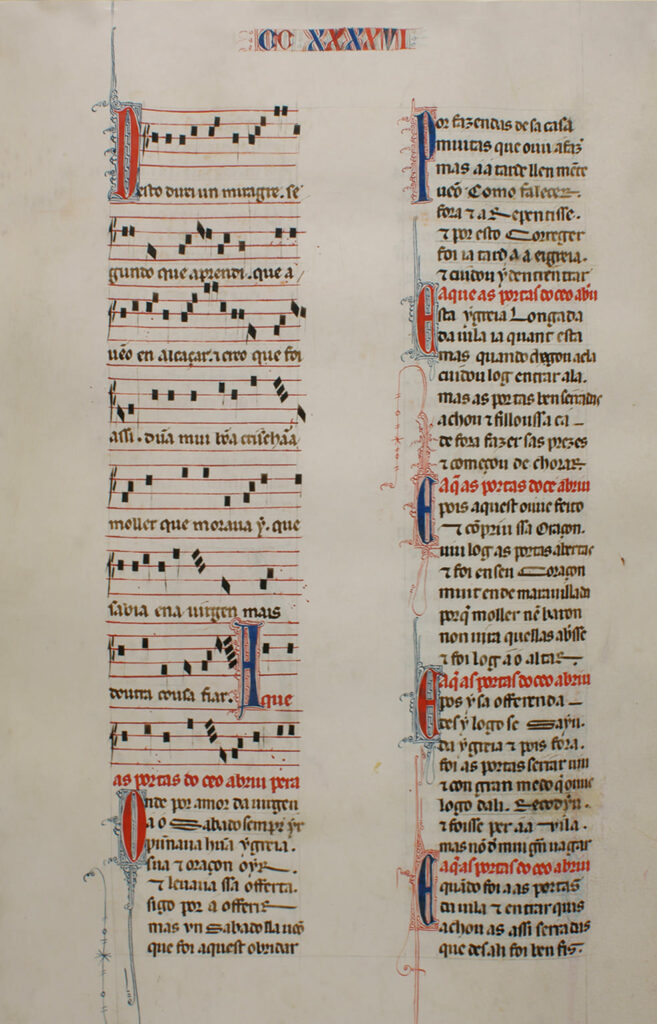 CC XXXXVI
Desto direi un miragre. se
gundo que aprendi. que a
uẽo en alcaçar. ⁊ creo que foi
assi. dũa mui bõa crischãa
moller que moraua y. que
sabia ena uirgen mais
doutra cousa fiar. A que
as portas do ceo abriu pera
Onde por amor da uirgen
a o Sabado sempr yr
punnaua hũa ygreia.
sua ⁊ oraçon oyr
⁊ leuaua ssa offerta.
sigo por a offerir
mas vn Sabado lla uẽo
que foi aquest obridar
Por fazendas de sa casa
muitas que ouu a faz
mas aa tarde llen mẽte
uẽo Como falecer
fora ⁊ a Repentisse.
⁊ por esto Correger
foi ia tard a a eigreia.
⁊ cuidou y dentr entrar
Eaque as portas do ceo abriu
sta ygreia Longada
da uila ia quant esta
mas quando chegou acla
cuidou log entrar ala.
mas as portas ben serradas
achou ⁊ filloussa ca
de fora fazer sas prezes
⁊ começou de chorar
Eaq̃ as portas do ce abriu
pois aquest ouue feito
⁊ cõpriu ssa Oraçon.
uiu log as portas abertas
⁊ foi en seu Coraçon
muit ende marauillada
porq̃ moller nẽ baron
non uira que llas abrisse
⁊ foi log a o altar
Eaq̃ as portas do ceo abriu
pos y sa offerenda
des y logo se Sayu.
da ygreia ⁊ pois fora.
foi as portas serrar uiu
⁊ con gran medo q̃ ouue
logo dali. Se cod yu.
⁊ foisse per aa Vila.
mas nõ d mui gñ uagar
Eaq̃ as portas do ceo abriu
quãdo foi a as portas
da uila ⁊ entrar quis
achou as assi serradas
que desali foi ben fis.